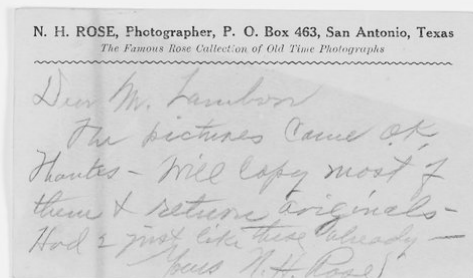 N. H. ROSE, Photographer, P. O. Box 463, San Antonio, Texas
The Famous Rose Collection of Old Time Photographs
Dear Mr.
The pictures came O.K.
Thanks - Will copy most of
them & return originals -
Had 2 just like these already -
Yours N. H. Rose